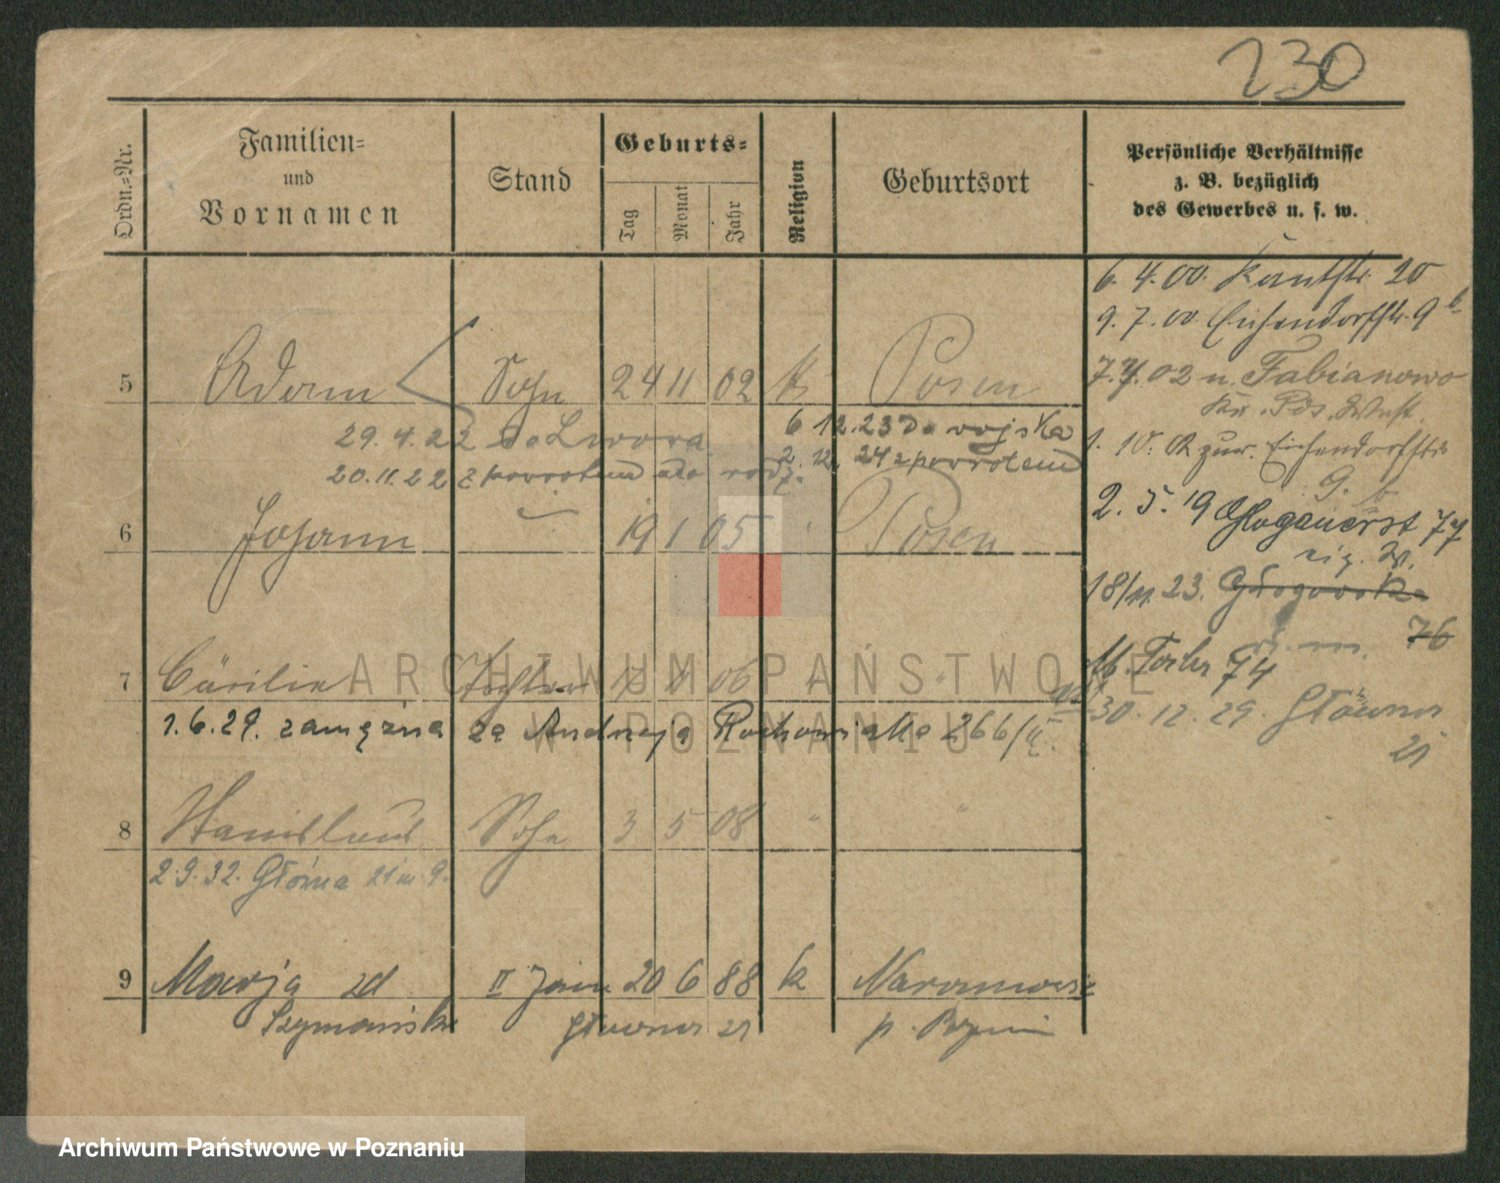 230
Ordn.-Nr.
Familien-
und
Vornamen
Stand
Geburts-
Tag
Monat
Jahr
Religion
Geburtsort
Persönliche Verhältnisse
z. B. bezüglich
des Gewerbes u. s. w.
6. 4. 00. Kantstr. 20
9. 7. 00 Eichendorffstr. 9 b
5 Adam Sohn 24 11 02 k Posen
7. 7. 02 n. Fabianowo
Kr. Pos. West.
29.4.22 do Lwowa
6 12.23 do wojska
1. 10. 02 zur. Eichendorffstr.
20.11.22 z powrotem do rodz.
2. 12. 24 z powrotem
9. b
6 Johann 19 1 05 Posen
2. 5. 19 Glogauerst 77
18/11. 23. Głogowska
76
7 Cäcilie Tochter 06 " "
74
1.6.29. zamężna za Andrzeja 266/
30. 12. 29. Główna
21
8 Stanislaus Sohn 3 5 08 " "
2.9.32. Główna 21 m 9.
9 Marja zd II 20 6 88 k
Szymańska Główna 21 p.
ARCHIWUM PAŃSTWOWE
W POZNANIU
Archiwum Państwowe w Poznaniu